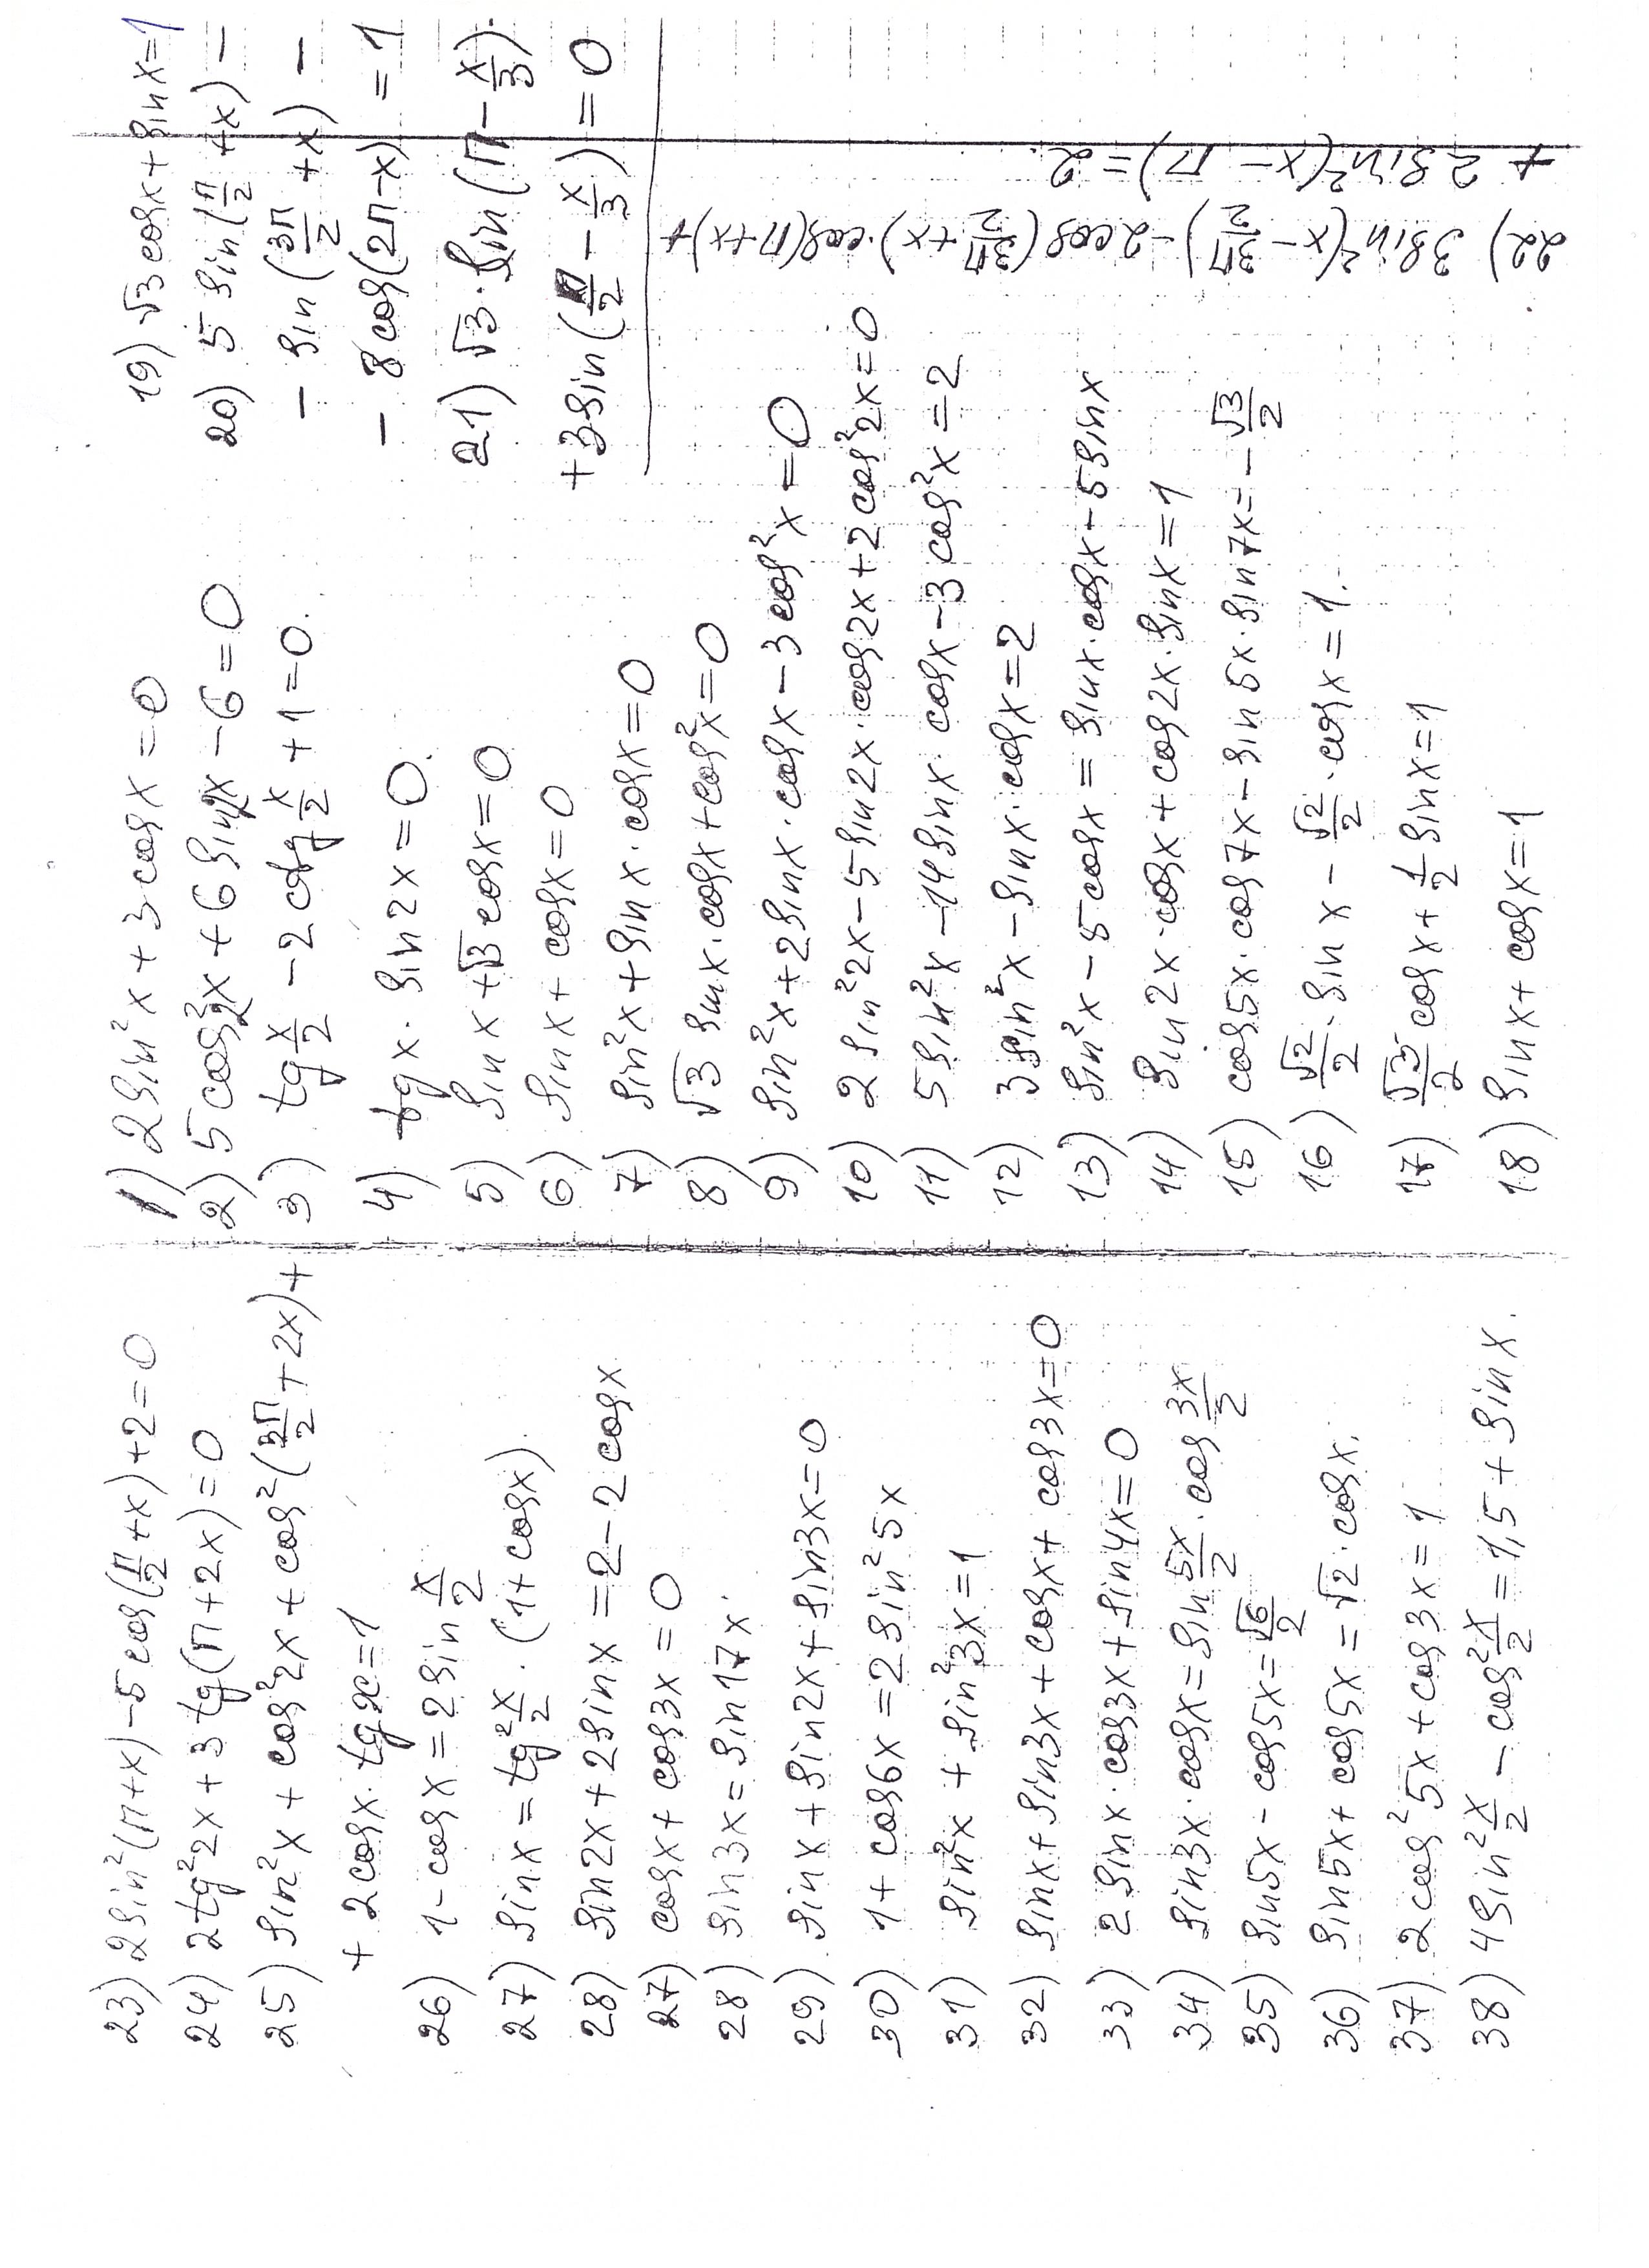 1) 2 sin²x + 3 cos x = 0
2) 5 cos²2x + 6 sin 2x - 6 = 0
3) tg x/2 - 2 ctg x/2 + 1 = 0.
4) tg x · sin 2x = 0.
5) sin x + √3 cos x = 0
6) sin x + cos x = 0
7) sin²x + sin x · cos x = 0
8) √3 sin x · cos x + cos²x = 0
9) sin²x + 2 sin x · cos x - 3 cos²x = 0
10) 2 sin²2x - 5 sin 2x · cos 2x + 2 cos²2x = 0
11) 5 sin²x - 14 sin x · cos x - 3 cos²x = 2
12) 3 sin²x - sin x · cos x = 2
13) sin²x - 5 cos x = sin x · cos x - 5 sin x
14) sin 2x · cos x + cos 2x · sin x = 1
15) cos 5x · cos 7x - sin 5x · sin 7x = - √3/2
16) √2/2 · sin x - √2/2 · cos x = 1.
17) √3/2 cos x + 1/2 sin x = 1
18) sin x + cos x = 1
19) √3 cos x + sin x = 1
20) 5 sin(π/2 + x) -
- sin(3π/2 + x) -
- 8 cos(2π - x) = 1
21) √3 · sin(π - x/3) ·
+ 3 sin(π/2 - x/3) = 0
22) 3 sin²(x - 3π/2) - 2 cos(3π/2 + x) · cos(π + x) +
+ 2 sin²(x - π) = 2.
23) 2 sin²(π + x) - 5 cos(π/2 + x) + 2 = 0
24) 2 tg²2x + 3 tg(π + 2x) = 0
25) sin²x + cos²2x + cos²(3π/2 + 2x) +
+ 2 cos x · tg x = 1
26) 1 - cos x = 2 sin x/2
27) sin x = tg² x/2 · (1 + cos x).
28) sin 2x + 2 sin x = 2 - 2 cos x
27) cos x + cos 3x = 0
28) sin 3x = sin 17x.
29) sin x + sin 2x + sin 3x = 0
30) 1 + cos 6x = 2 sin²5x
31) sin²x + sin²3x = 1
32) sin x + sin 3x + cos x + cos 3x = 0
33) 2 sin x · cos 3x + sin 4x = 0
34) sin 3x · cos x = sin 5x/2 · cos 3x/2
35) sin 5x - cos 5x = √6/2
36) sin 5x + cos 5x = √2 · cos x.
37) 2 cos²5x + cos 3x = 1
38) 4 sin² x/2 - cos² x/2 = 1,5 + sin x.